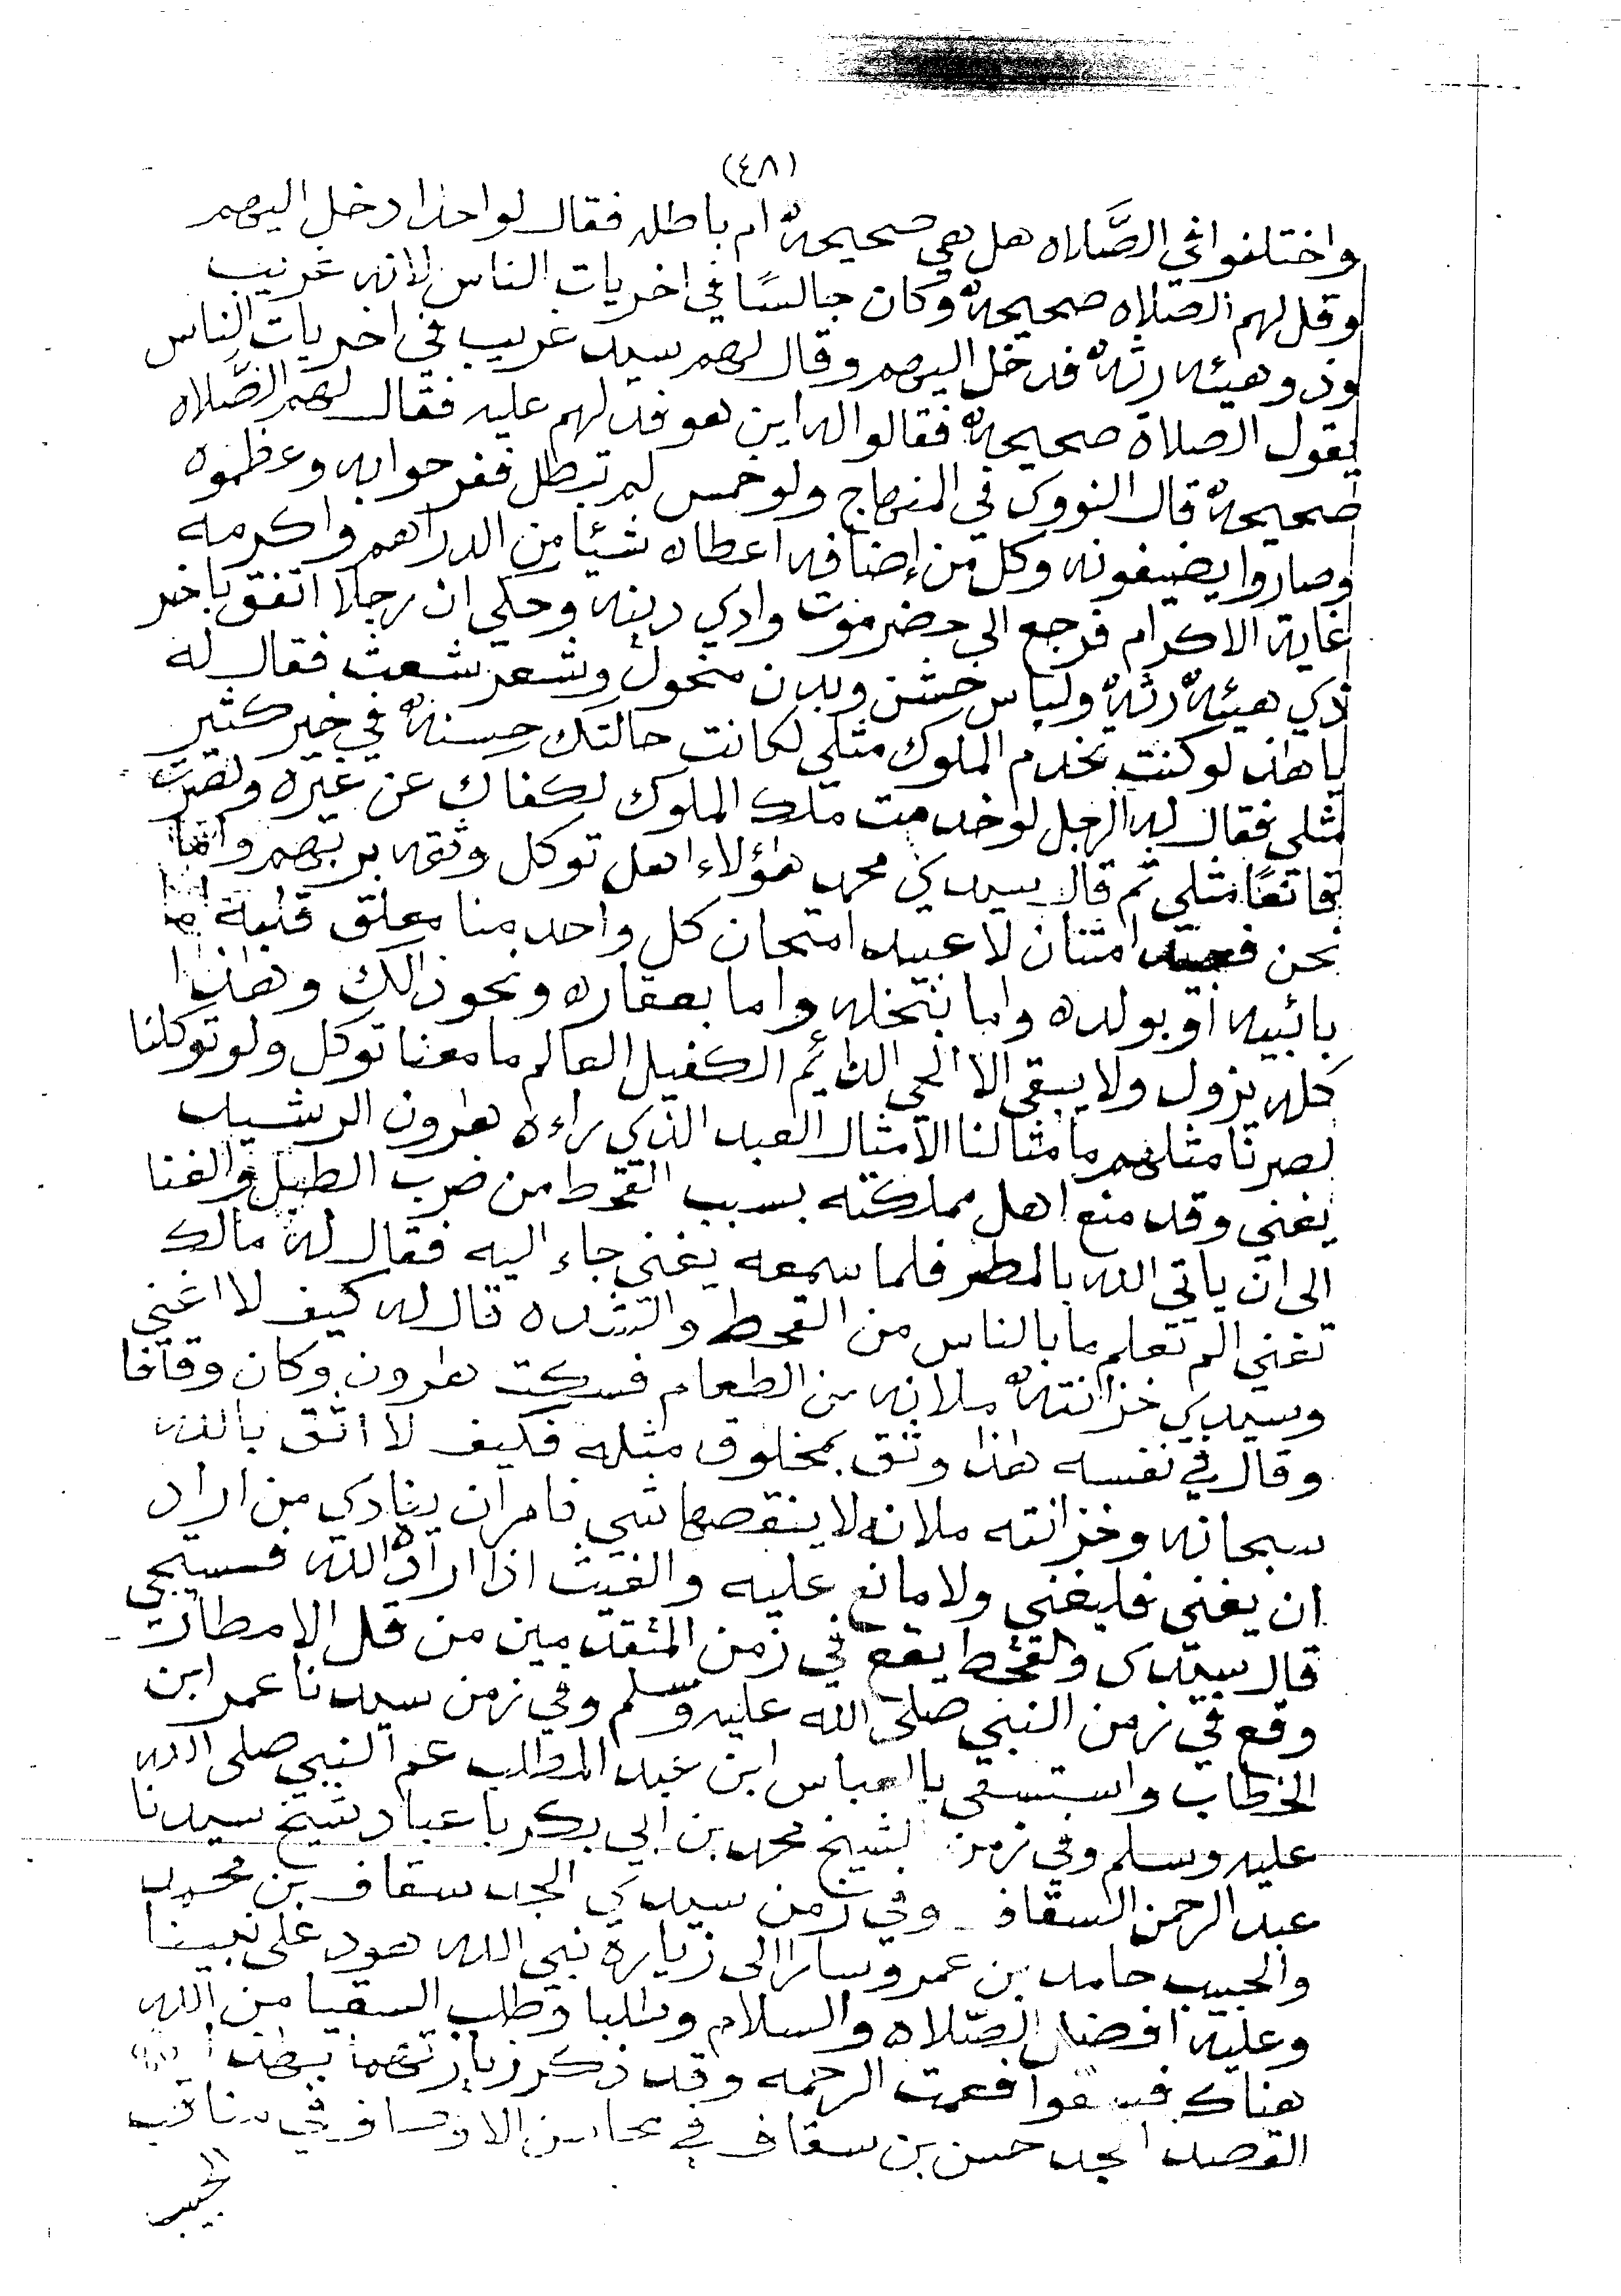 (٤٨)
واختلفوا في الصَّلاه هل هي صحيحةٌ ام باطله فقال لواحد ادخل اليهم
وقل لهم الصلاه صحيحةٌ وكان جالسًا في اخريات الناس لانه غريب
وذو هيئه رثهٌ فدخل اليهم وقال لهم سيد غريب في اخريات الناس
يقول الصلاة صحيحهٌ فقالوا له اين هو فدلهم عليه فقال لهم الصَّلاه
صحيحهٌ قال النووي في المنهاج ولو خمس لم تبطل ففرحوا به وعظموه
وصاروا يضيفونه وكل من إضافه اعطاه شيئا من الدراهم واكرمه
غاية الاكرام فرجع الى حضرموت وادي دينه وحكي ان رجلا اتفق باخر
ذي هيئهٌ رثهٌ ولباس خشن وبدن منحول وشعر شعث فقال له
يا هذا لو كنت تخدم الملوك مثلي لكانت حالتك حسنهٌ في خير كثير
مثلي فقال له الرجل لو خدمت ملك الملوك لكفاك عن غيره ولصرت
قانعًا مثلي ثم قال سيدي محمد هؤلاء اهل توكل وثقه بربهم واما
نحن فعبيد امتنان لا عبيد امتحان كل واحد منا معلق قلبه اما
بائبيه او بولده واما بنخله واما بعقاره ونحو ذالك وهاذا
كله يزول ولا يبقى الا الحي الدائم الكفيل العالم ما معنا توكل ولو توكلنا
لصرنا مثلهم ما مثالنا الا مثال العبد الذي راءه هارون الرشيد
يغني وقد منع اهل مملكته بسبب القحط من ضرب الطبل والغنا
الى ان ياتي الله بالمطر فلما سمعه يغني جاء اليه فقال له مالك
تغني الم تعلم ما بالناس من القحط والشده قال له كيف لا اغني
وسيدي خزانتهٌ ملانه من الطعام فسكت هارون وكان وقافا
وقال في نفسه هاذا وثق بمخلوق مثله فكيف لا اثق بالله
سبحانه وخزانته ملانه لا ينقصها شي فامر ان ينادي من اراد
ان يغني فليغني ولا مانع عليه والغيث اذا اراده الله فسيجي
قال سيدي والقحط يقع في زمن المتقدمين من قل الامطار
وقع في زمن النبي صلى الله عليه وسلم وفي زمن سيدنا عمر ابن
الخطاب واستسقى باالعباس ابن عبد المطلب عم النبي صلى الله
عليه وسلم وفي زمن الشيخ محمد بن ابي بكر باعباد شيخ سيدنا
عبد الرحمن السقاف وفي زمن سيدي الجد سقاف بن محمد
والحبيب حامد بن عمر وسارا الى زيارة نبي الله هود على نبينا
وعليه افضل الصّلاه والسلام وطلبا وطلب السقيا من الله
هناك فسقوا فعمت الرحمه وقد ذكر زيارتهما بهاذا
القصد الجد حسن بن سقاف في محاسن الاوصاف في مناقب
الحبيب